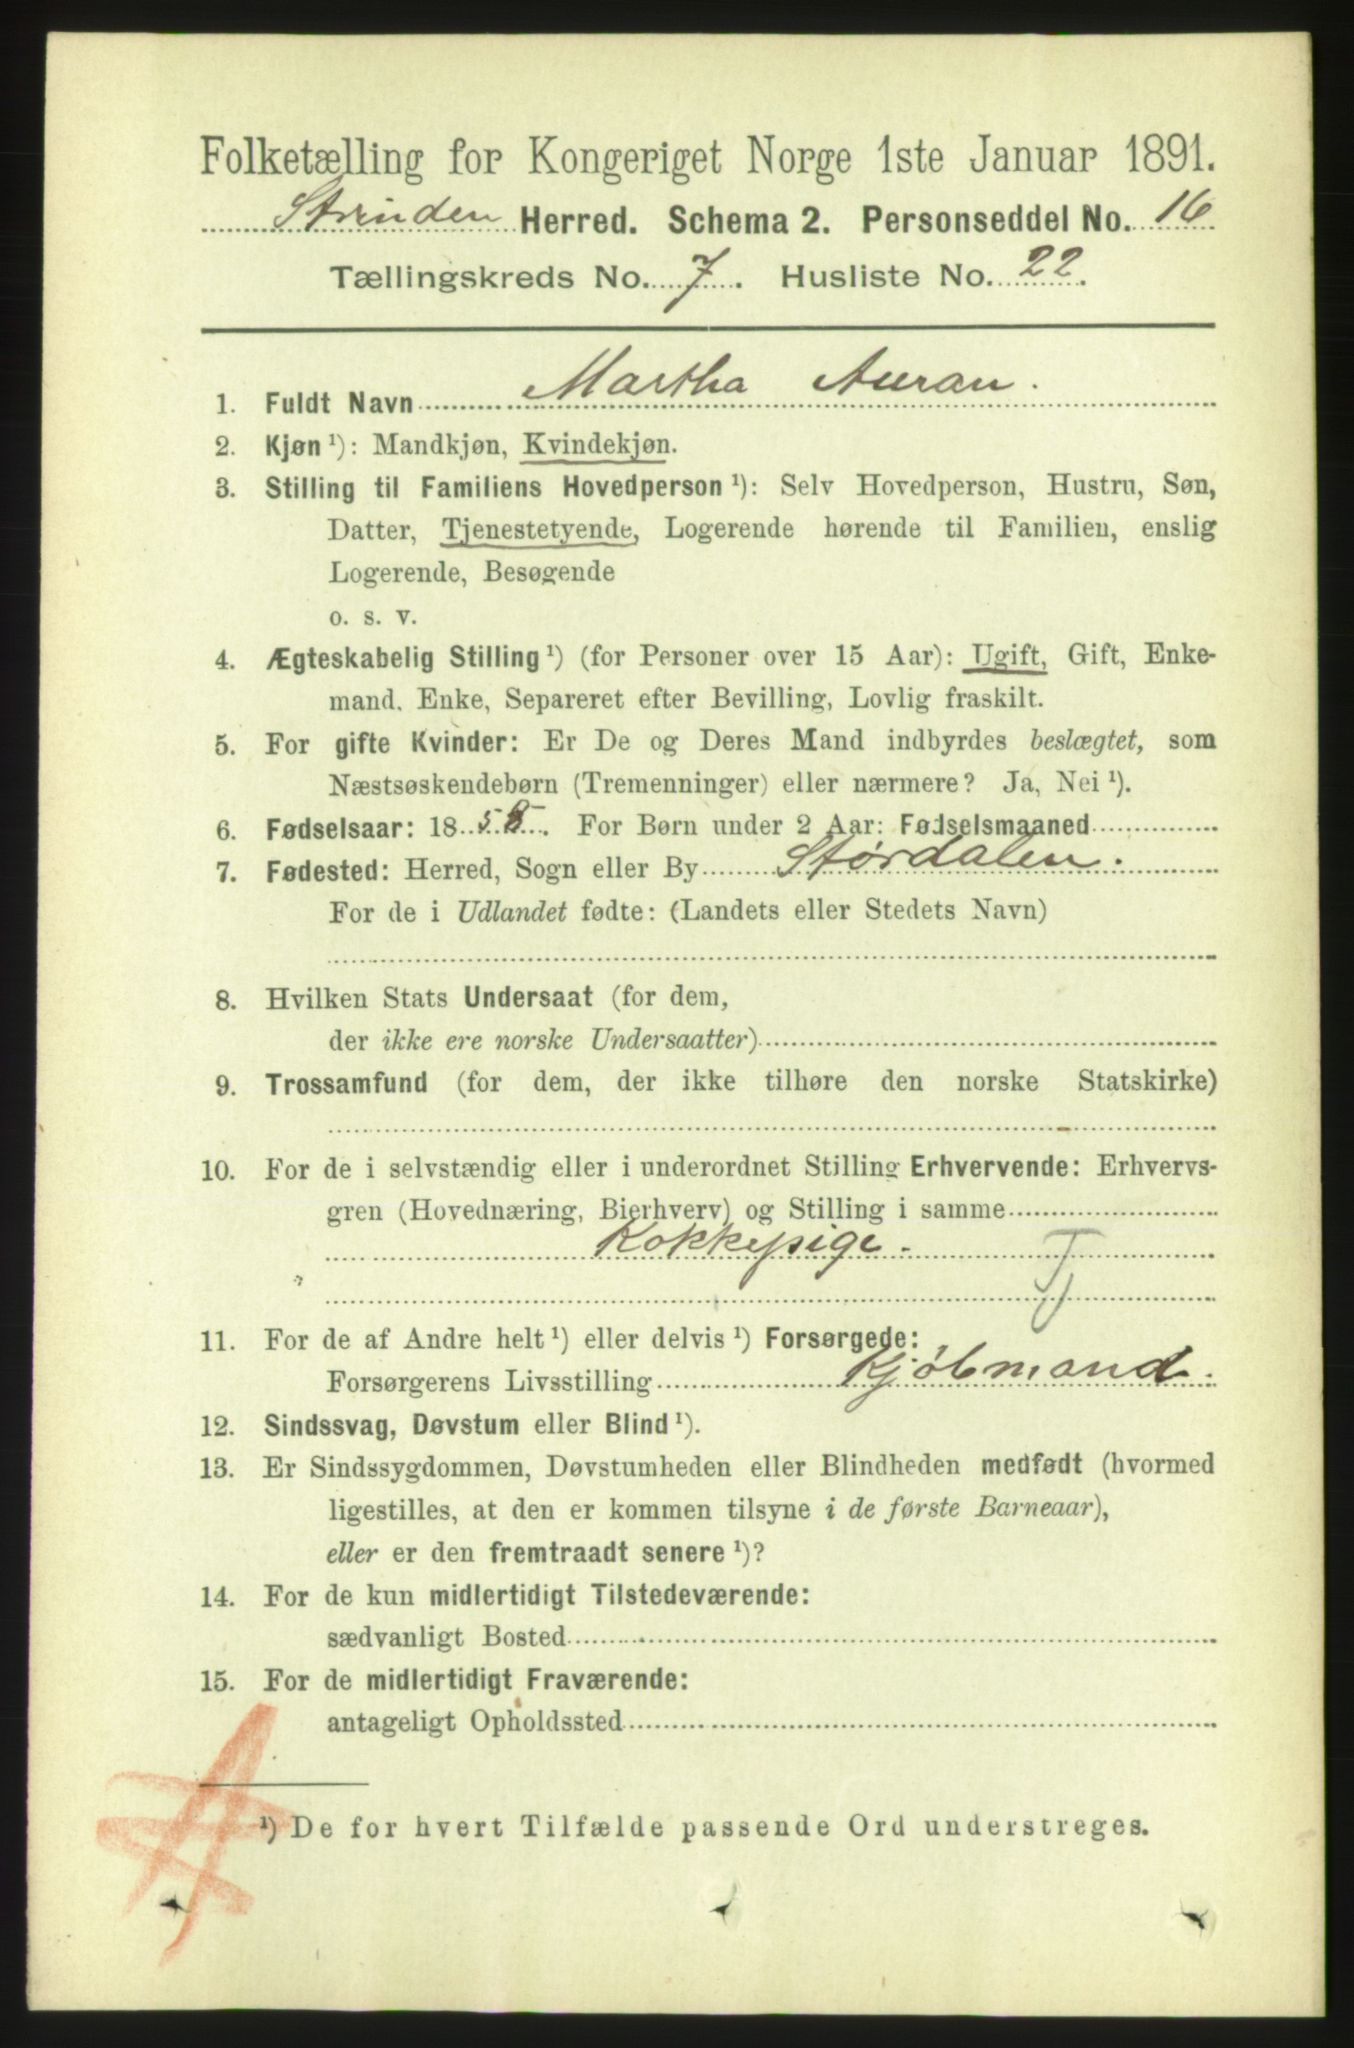 Folketælling for Kongeriget Norge 1ste Januar 1891.
Strinden Herred. Schema 2. Personseddel No. 16
Tællingskreds No. 7. Husliste No. 22.
1. Fuldt Navn Martha Auran.
2. Kjøn ¹): Mandkjøn, Kvindekjøn.
3. Stilling til Familiens Hovedperson ¹): Selv Hovedperson, Hustru, Søn,
Datter, Tjenestetyende, Logerende hørende til Familien, enslig
Logerende, Besøgende
o. s. v.
4. Ægteskabelig Stilling ¹) (for Personer over 15 Aar): Ugift, Gift, Enke-
mand, Enke, Separeret efter Bevilling, Lovlig fraskilt.
5. For gifte Kvinder: Er De og Deres Mand indbyrdes beslægtet, som
Næstsøskendebørn (Tremenninger) eller nærmere? Ja, Nei ¹).
6. Fødselsaar: 18 . For Børn under 2 Aar: Fødselsmaaned
7. Fødested: Herred, Sogn eller By Størdalen.
For de i Udlandet fødte: (Landets eller Stedets Navn)
8. Hvilken Stats Undersaat (for dem,
der ikke ere norske Undersaatter)
9. Trossamfund (for dem, der ikke tilhøre den norske Statskirke)
10. For de i selvstændig eller i underordnet Stilling Erhvervende: Erhvervs-
gren (Hovednæring, Bierhverv) og Stilling i samme
Kokkepige.
11. For de af Andre helt ¹) eller delvis ¹) Forsørgede:
Forsørgerens Livsstilling Kjøbmand.
12. Sindssvag, Døvstum eller Blind ¹).
13. Er Sindssygdommen, Døvstumheden eller Blindheden medfødt (hvormed
ligestilles, at den er kommen tilsyne i de første Barneaar),
eller er den fremtraadt senere ¹)?
14. For de kun midlertidigt Tilstedeværende:
sædvanligt Bosted
15. For de midlertidigt Fraværende:
antageligt Opholdssted
¹) De for hvert Tilfælde passende Ord understreges.